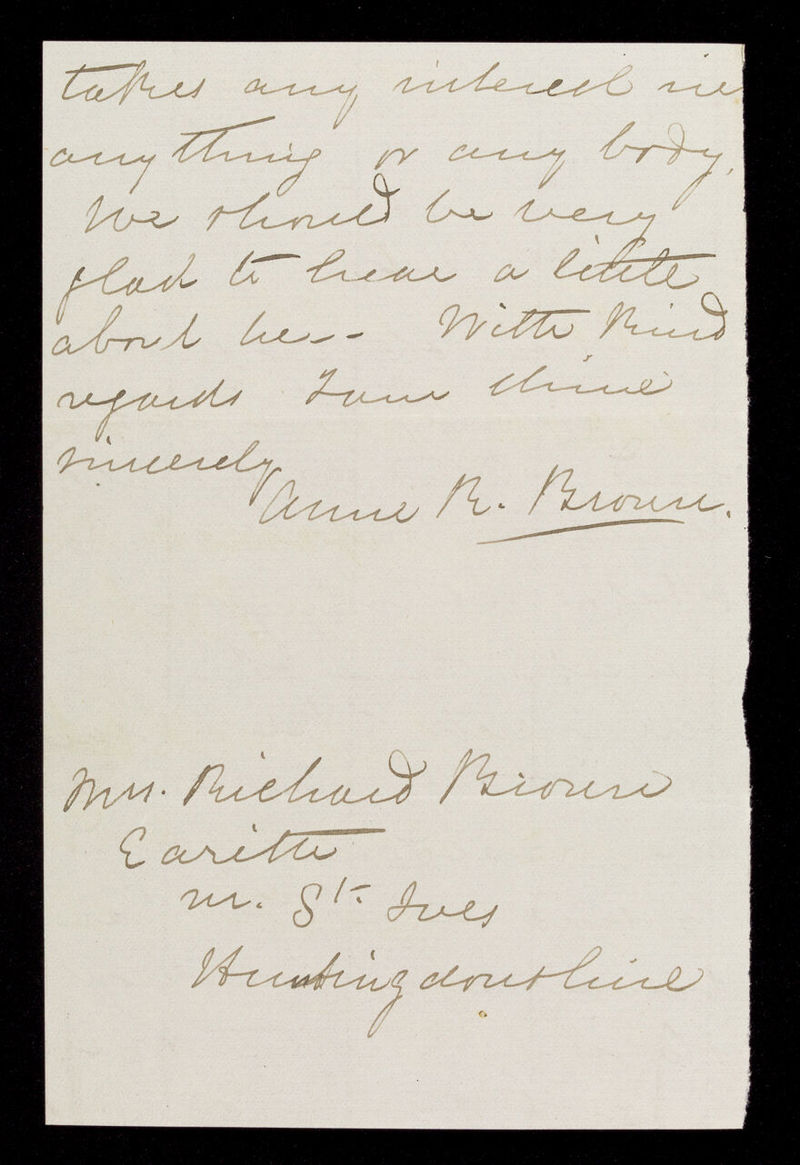 takes any interest in
anything or any body.
We should be very
glad to hear a little
about her -- With kind
regards I am thine
sincerely
Anne R. Brown.
Mrs. Richard Brown
Earith
nr. St. Ives
Huntingdonshire